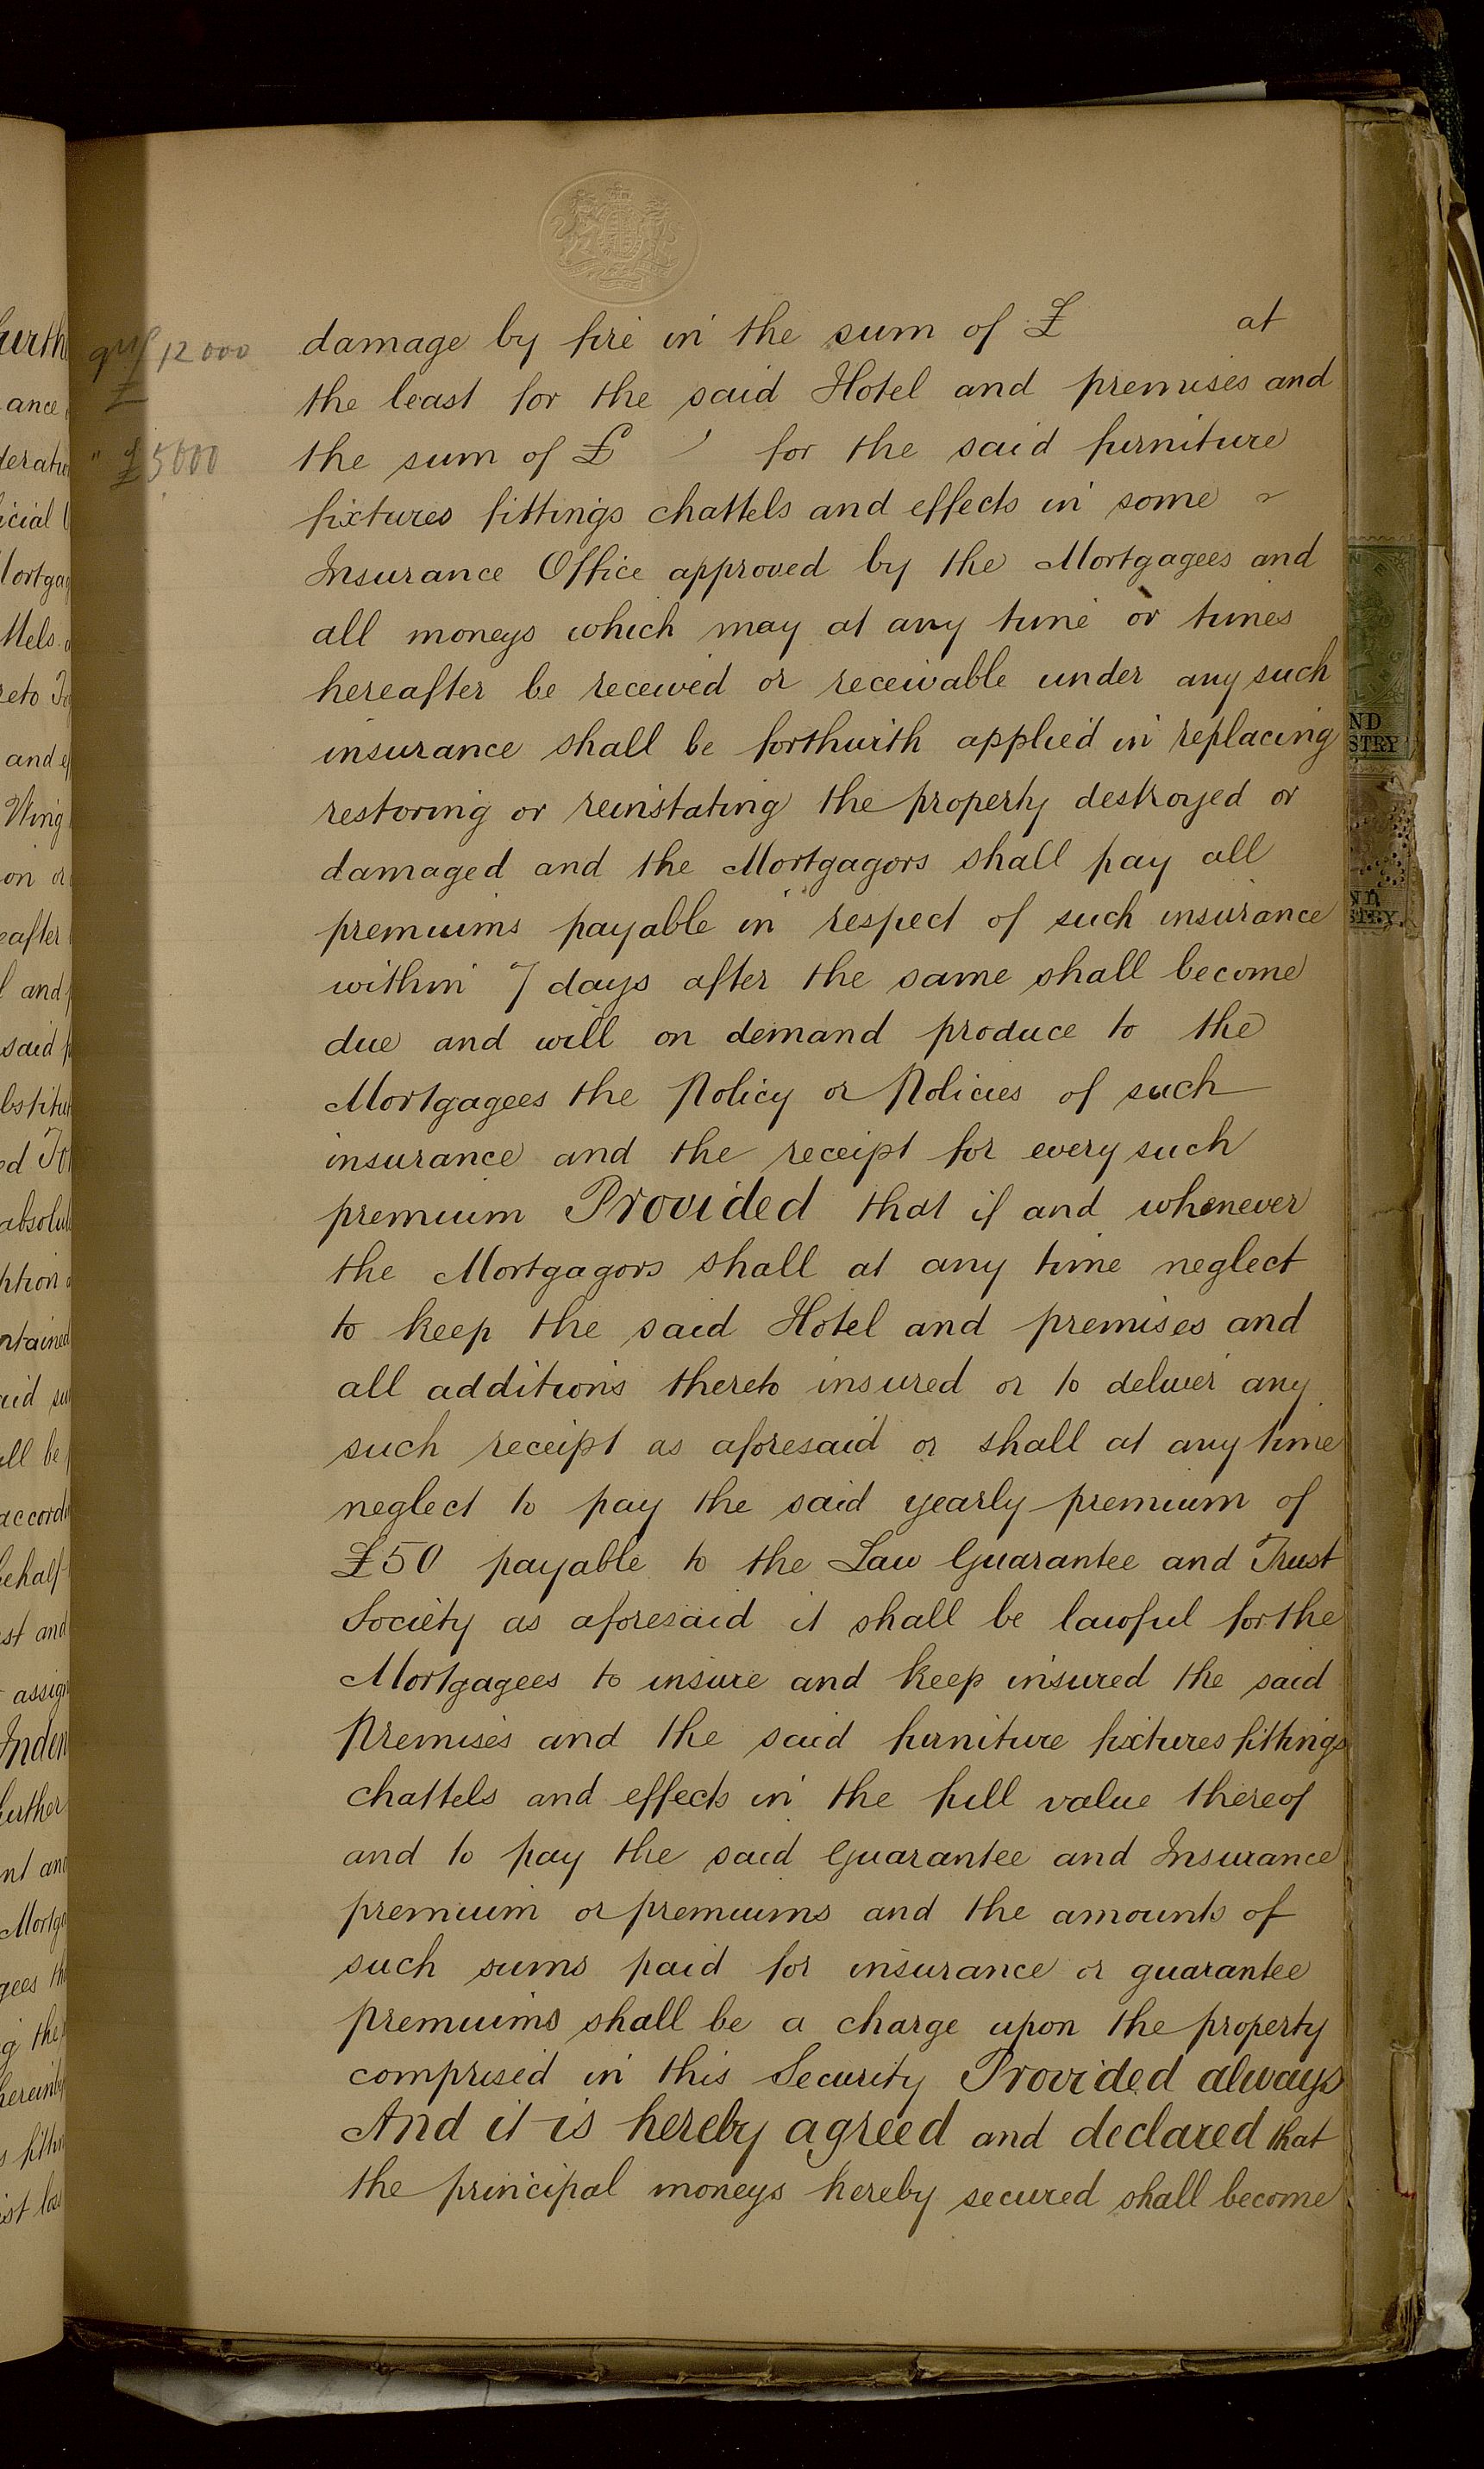 12000
£5000
damage by fire in the sum of £ at
the least for the said Hotel and premises and
the sum of £ for the said furniture
fixtures fittings chattels and effects in some
Insurance Office approved by the Mortgagees and
all moneys which may at any time or times
hereafter be received or receivable under any such
insurance shall be forthwith applied in replacing
restoring or reinstating the property destroyed or
damaged and the Mortgagors shall pay all
premiums payable in respect of such insurance
within 7 days after the same shall become
due and will on demand produce to the
Mortgagees the Policy or Policies of such
insurance and the receipt for every such
premium Provided that if and whenever
the Mortgagors shall at any time neglect
to keep the said Hotel and premises and
all additions thereto insured or to deliver any
such receipt as aforesaid or shall at any time
neglect to pay the said yearly premium of
£50 payable to the Law Guarantee and Trust
Society as aforesaid it shall be lawful for the
Mortgagees to insure and keep insured the said
Premises and the said furniture fixtures fittings
chattels and effects in the full value thereof
and to pay the said Guarantee and Insurance
premium or premiums and the amounts of
such sums paid for insurance or guarantee
premiums shall be a charge upon the property
comprised in this Security Provided always
And it is hereby agreed and declared that
the principal moneys hereby secured shall become